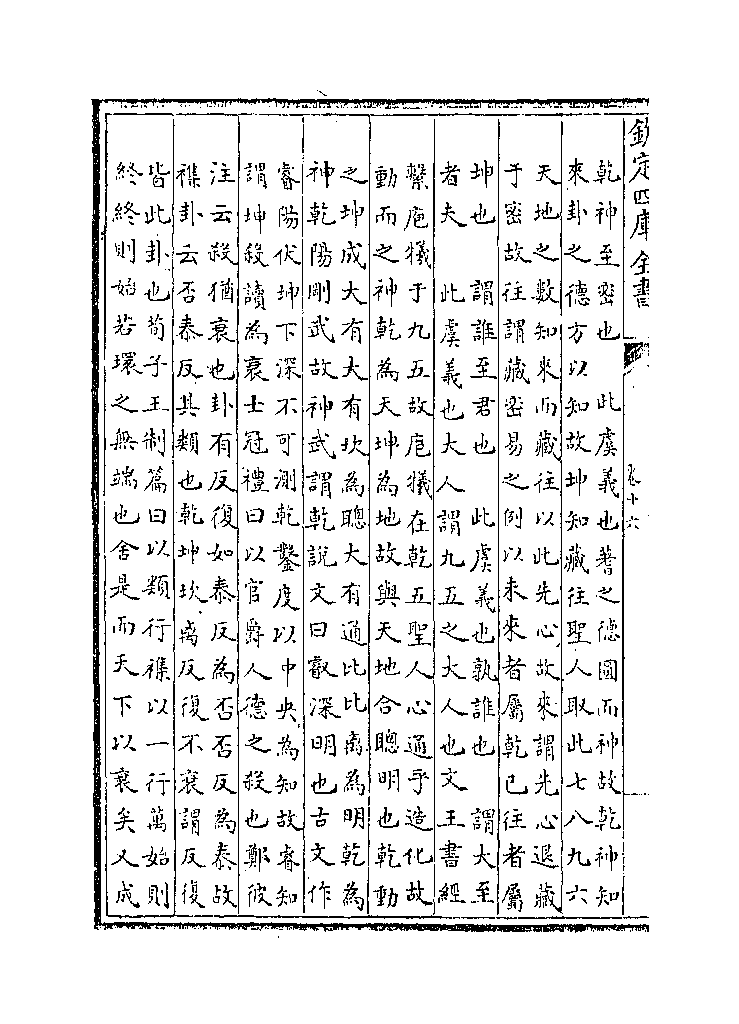 欽定四庫全書
卷十六
乾神至密也　此虞義也蓍之德圓而神故乾神知
來卦之德方以知故坤知藏往聖人取此七八九六
天地之數知來而藏往以此先心故來謂先心退藏
于密故往謂藏密易之例以未來者屬乾已往者屬
坤也　謂誰至君也　此虞義也孰誰也　謂大至
者夫　此虞義也大人謂九五之大人也文王書經
繫庖犧于九五故庖犧在乾五聖人心通乎造化故
動而之神乾為天坤為地故與天地合聰明也乾動
之坤成大有大有坎為聰大有通比比離為明乾為
神乾陽剛武故神武謂乾說文曰叡深明也古文作
睿陽伏坤下深不可測乾鑿度以中央為知故睿知
謂坤殺讀為衰士冠禮曰以官爵人德之殺也鄭彼
注云殺猶衰也卦有反復如泰反為否否反為泰故
襍卦云否泰反其類也乾坤坎离反復不衰謂反復
皆此卦也荀子王制篇曰以類行襍以一行萬始則
終終則始若環之無端也舍是而天下以衰矣又成